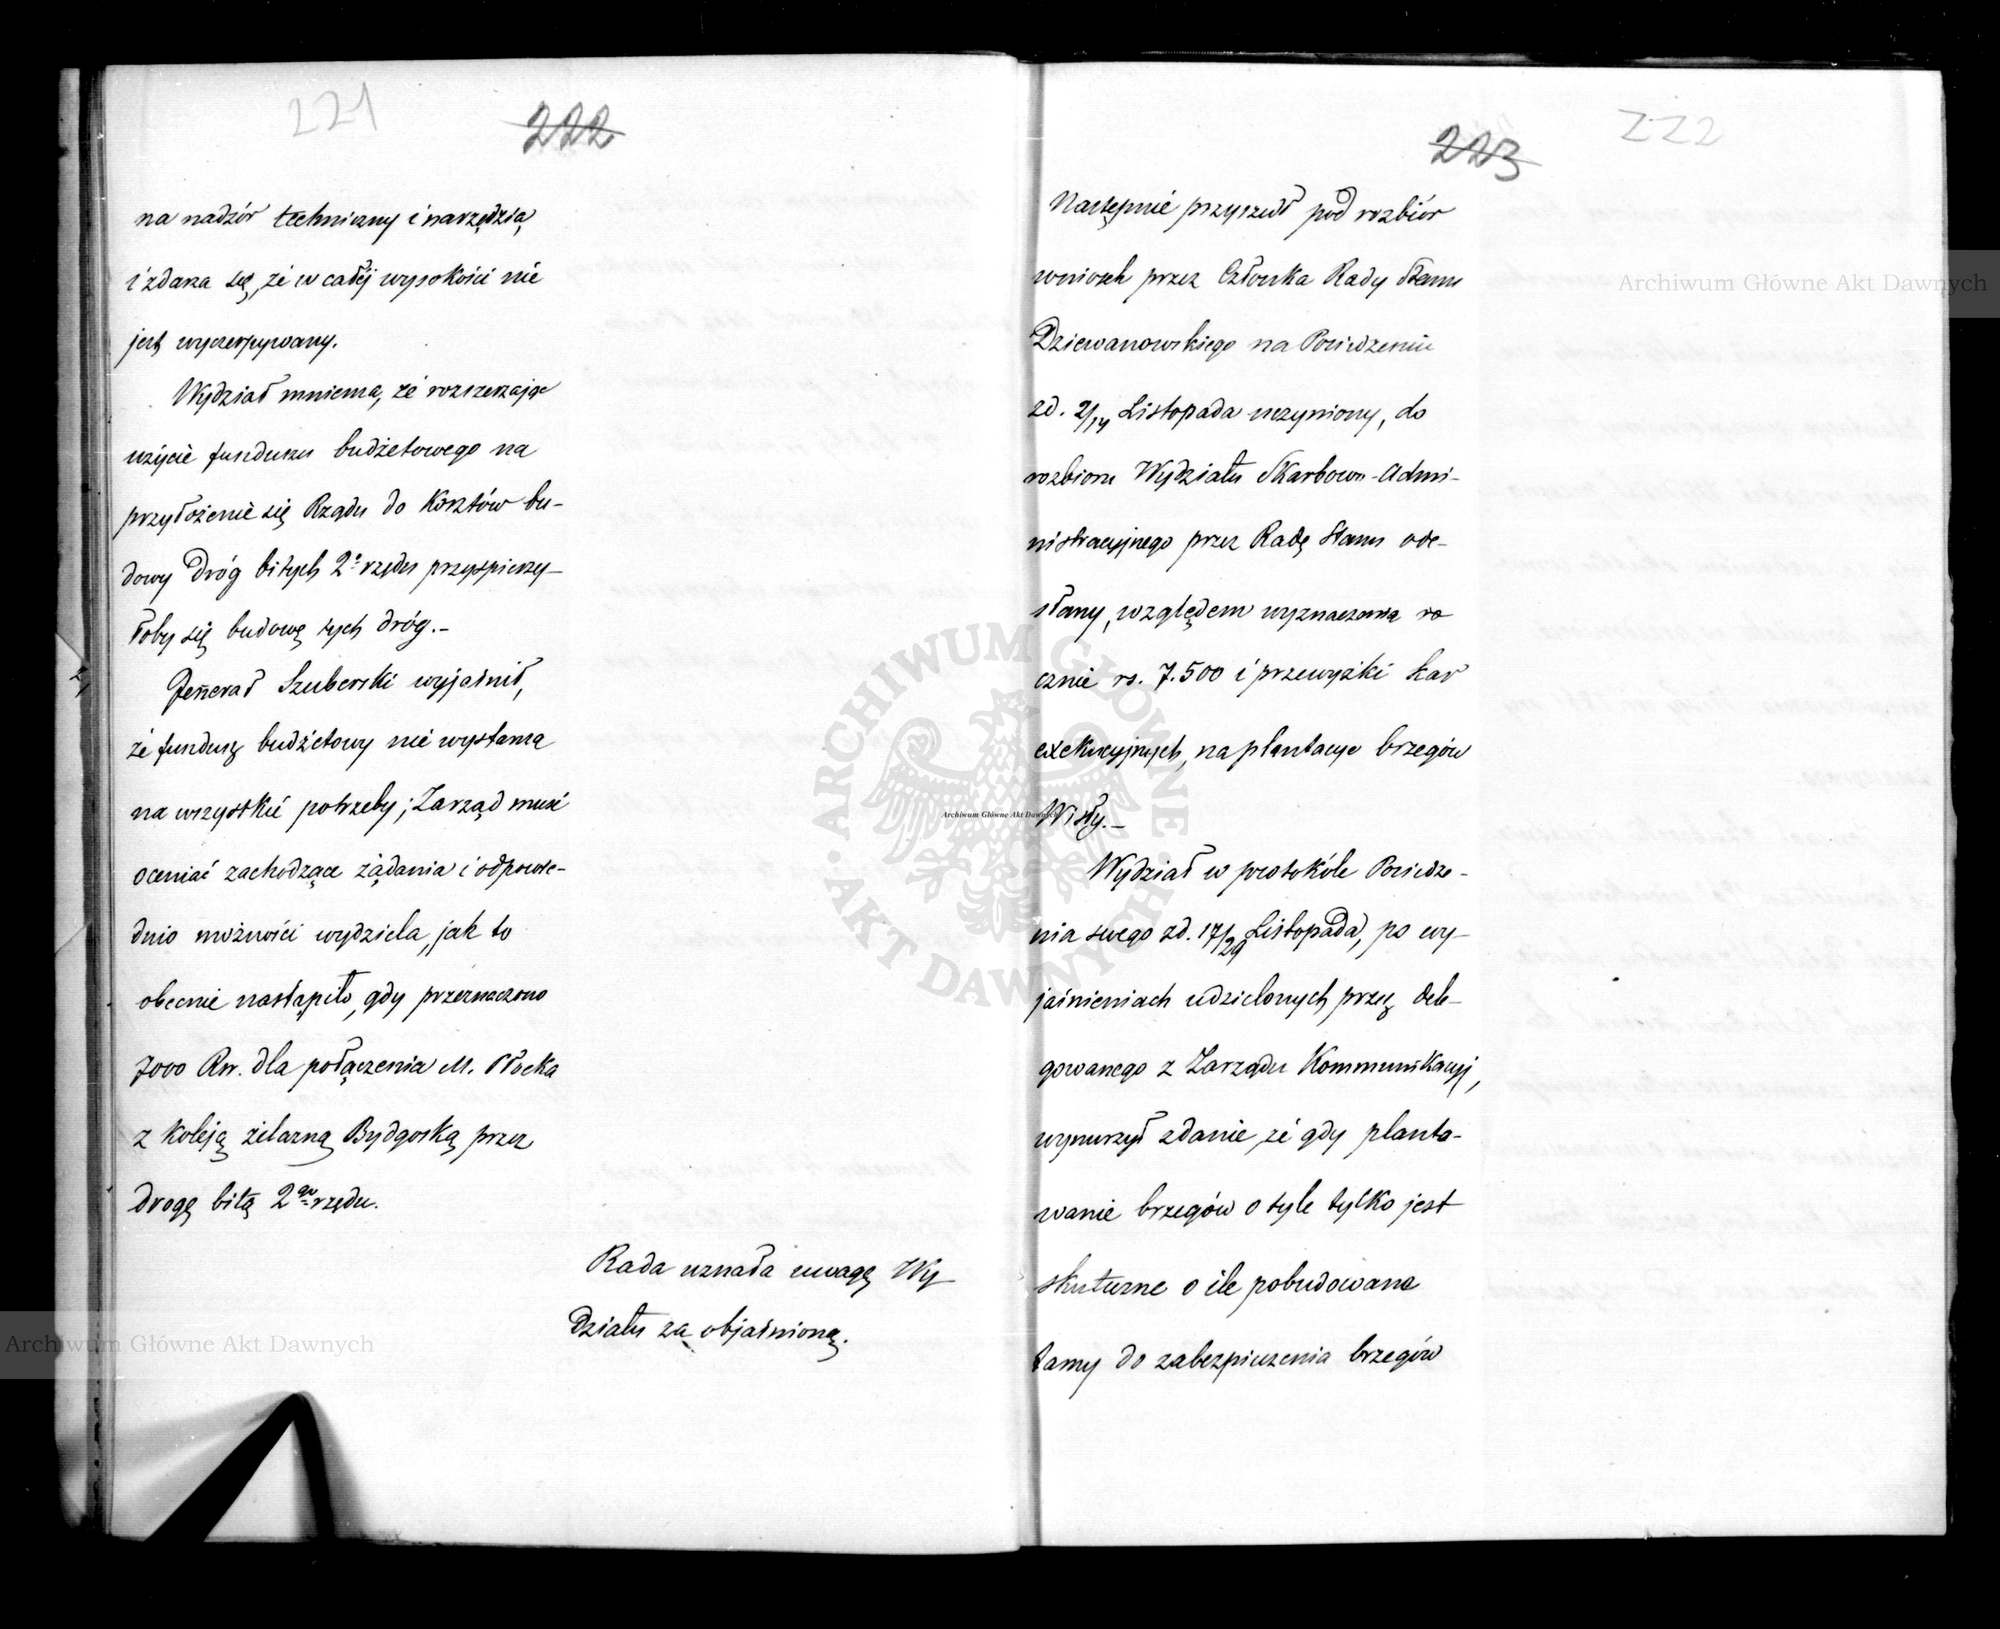 221
222
na nadzór techniczny i narzędzia,
i zdarza się, że w całéj wysokości nie
jest wyczerpywany.
Wydział mniema, że rozszerzając
użycie funduszu budżetowego na
przyłożenie się Rządu do Kosztów bu-
dowy dróg bitych 2º rzędu przyspieszy-
łoby się budowę tych dróg.-
Jenerał Szuberski wyjaśnił,
że fundusz budżetowy nie wystarcza
na wszystkie potrzeby; Zarząd musi
oceniać zachodzące żądania i odpowie-
dnio możności wydziela, jak to
obecnie nastąpiło, gdy przeznaczono
7000 Rsr. dla połączenia M. Płocka
z Koleją żelazną Bydgoską przez
drogę bitą 2go rzędu.
Rada uznała uwagę Wy-
działu za objaśnioną.
223
222
Następnie przyszedł pod rozbiór
wniosek przez Członka Rady Stanu
Dziewanowskiego na Posiedzeniu
zd. 2/14 Listopada uczyniony, do
rozbioru Wydziału Skarbowo-Admi-
nistracyjnego przez Radę Stanu ode-
słany, względem wyznaczenia ro
cznie rs. 7.500 i przewyżki kar
exekucyjnych, na plantacye brzegów
Wisły.-
Wydział w protokóle Posiedze-
nia swego zd. 17/29 Listopada, po wy-
jaśnieniach udzielonych przez dele-
gowanego z Zarządu Kommunikacyj,
wynurzył zdanie, że gdy planto-
wanie brzegów o tyle tylko jest
skuteczne o ile pobudowane
tamy do zabezpieczenia brzegów
Archiwum Główne Akt Dawnych
Archiwum Główne Akt Dawnych
Archiwum Główne Akt Dawnych
ARCHIWUM GŁÓWNE · AKT DAWNYCH ·